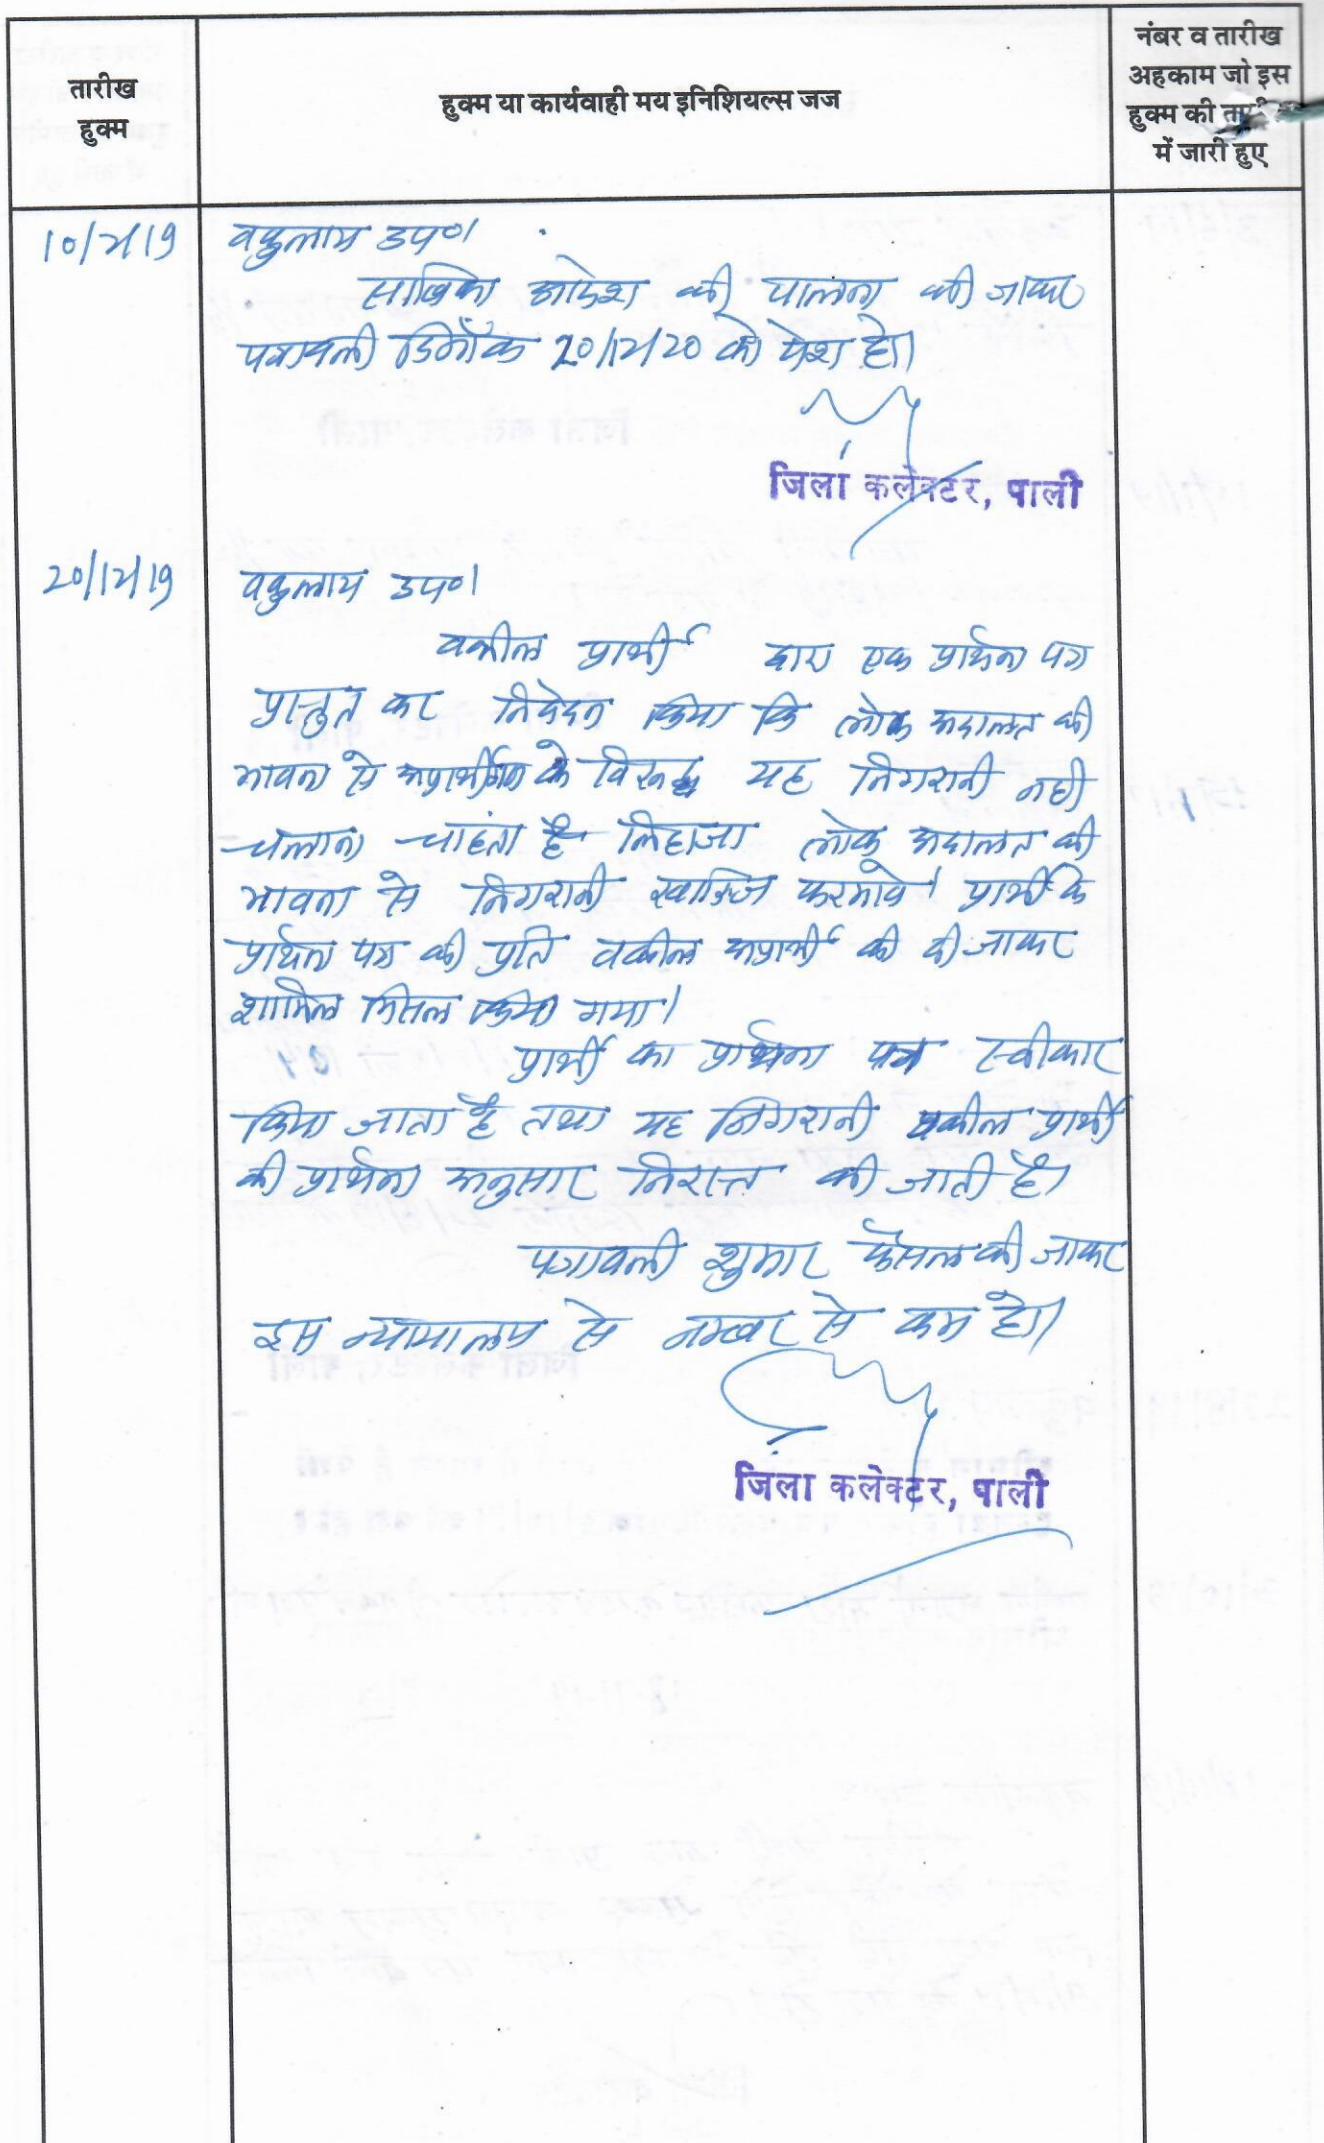 तारीख
हुक्म
हुक्म या कार्यवाही मय इनिशियल्स जज
नंबर व तारीख
अहकाम जो इस
हुक्म की
में जारी हुए
10/12/19 वकुलाय उप०।
साबिका आदेश की पालना की जाकर
पत्रावली दिनाँक 20/12/20 को पेश हो।
जिला कलेक्टर, पाली
20/12/19 वकुलाय उप०।
वकील प्रार्थी द्वारा एक प्रार्थना पत्र
प्रस्तुत कर निवेदन किया कि लोक अदालत की
भावना से अप्रार्थीगण के विरूद्ध यह निगरानी नही
चलाना चाहता है लिहाजा लोक अदालत की
भावना से निगरानी खारिज फरमावे। प्रार्थी के
प्रार्थना पत्र की प्रति वकील अप्रार्थी को दी जाकर
शामिल मिसल किया गया।
प्रार्थी का प्रार्थना पत्र स्वीकार
किया जाता है तथा यह निगरानी वकील प्रार्थी
की प्रार्थना अनुसार निरस्त की जाती है।
पत्रावली शुमार फैसल की जाकर
इस न्यायालय से नम्बर से कम हो।
जिला कलेक्टर, पाली